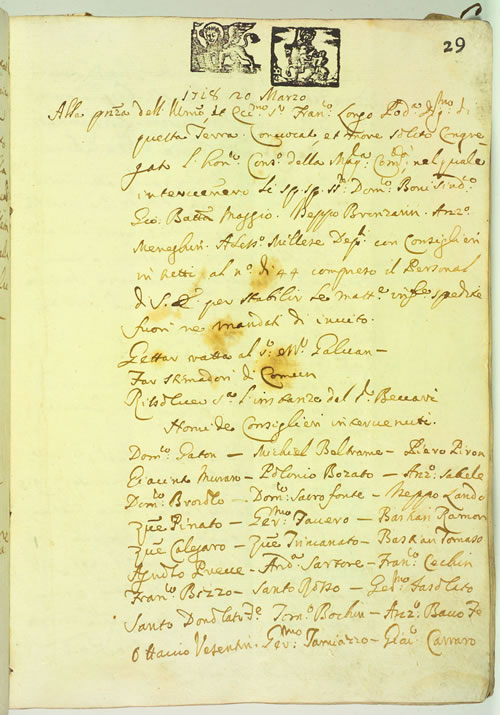 29
1718 20 Marzo
Alla pnza dell Illmo et Ecc.mo Sr Franco Longo Pod.a di
questa Terra Convocato, et more solito Congre
gato l'hon.o Cons.o della Mag.ca Com.tà, nel quale
intervennero li sp. sp. Sri Dom.co Boni Sind.co
Gio. Batta Maggio. Beppo Brenzarin. Anzo.
Meneghin. Aless.o Millese Dep.ti con Consiglieri
in tutti al n.o di 44 compreso il Personal
di S. E. per stabilir le matt.e spedite
fuori ne mandati di invito.
Gettar ratta al Galuan —
Far stimadori di Comun
l'instanza del Beccari
Nomi de Consiglieri intervenuti.
Dom.co Gaton — Michiel Beltrame — Piero Piron
Giacinto Muraro — Polonio Bozato — Anzo.
Dom.co — Dom.co Sacrofonte — Beppo Lando
Zue Pinato — Ger.mo Favero — Bastian Ramon
Zue Calegaro — Zue Trincanato — Bastian Tomaso
Agnolo — And.a Sartore — Fran.co Cechin
Fran.co Bozzo — Santo Rosso — Ger.mo Fasolato
Santo Donolato — Tom.o Bochin — Anzo. Bacco
Ottavio Vesentin. Ger.mo — Giac.o Carraro